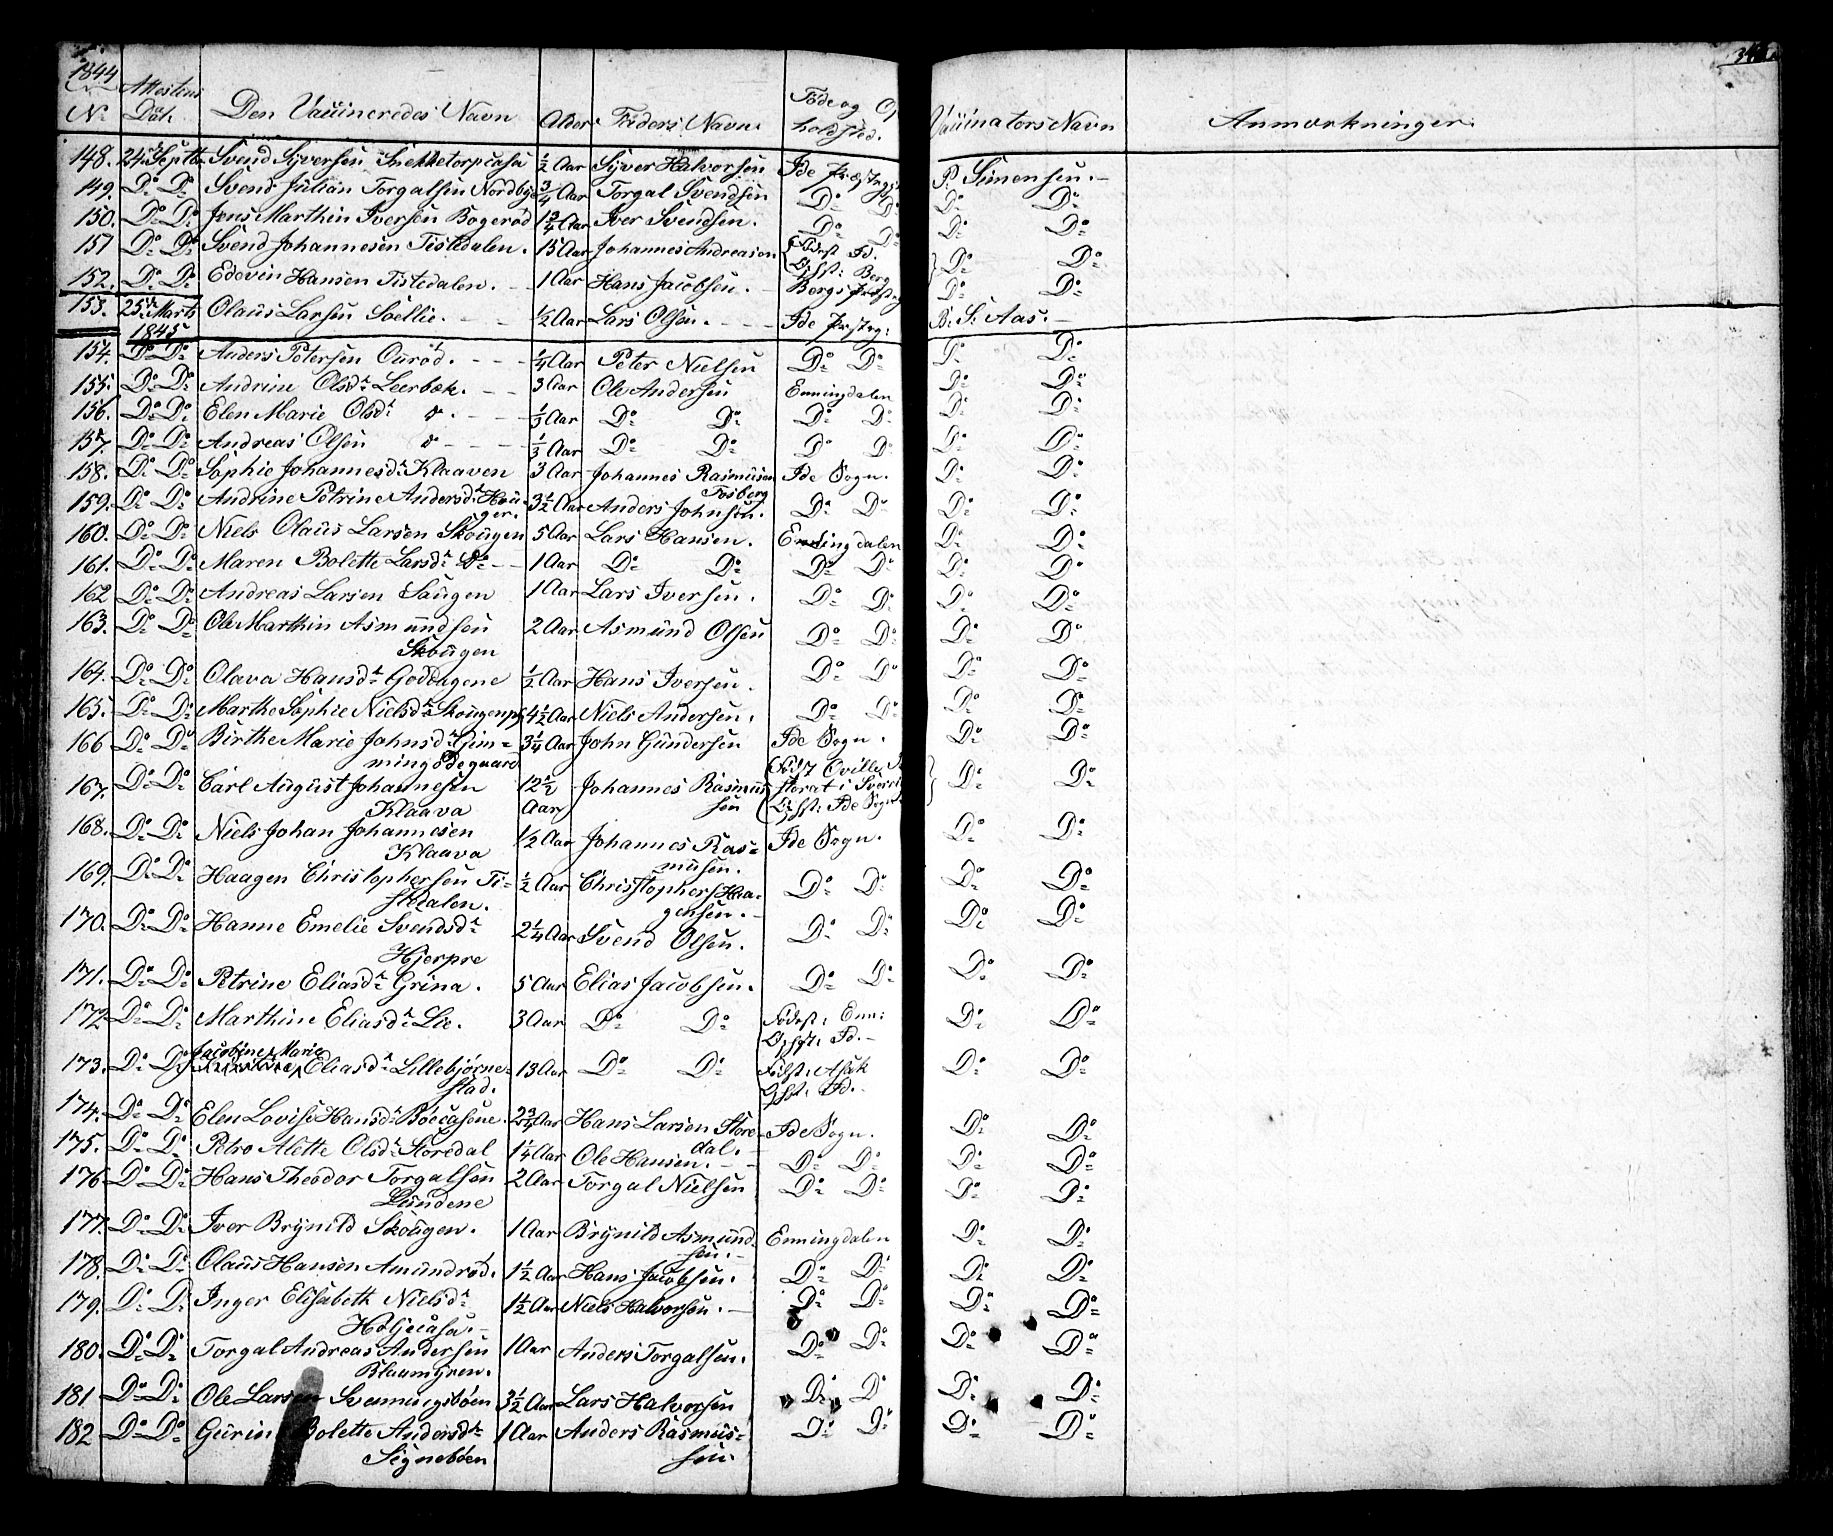 1844
No Attestens Dat. Den Vaccineredes Navn Alder Faders Navn Føde og Opholdsted. Vaccinators Navn Anmærkninger.
148. 24de Septbr Svend Syversen Snekketorpcasa ½ Aar Syver Halvorsen Ide Præstegj P. Simensen.
149. Do Do Svend Julian Torgalsen Nordbye ¾ Aar Torgal Svendsen Do Do Do Do
150. Do Do Jens Marthin Iversen Bogerød 1¾ Aar Iver Svendsen. Do Do Do Do
151 Do Do Svend Johannesen Tistedalen. 15 Aar Johannes Andreasen Födest Id. Do Do
Ophst: Berg
152. Do Do Edevin Hansen Tistedalen. 1 Aar Hans Jacobsen. Bergs Præsteg Do Do
153. 25de Marts Olaus Larsen Soellie. ½ Aar Lars Olsen. Ide Præsteg: B: S: Aas.
1845
154. Do Do Anders Petersen Ourød. ¼ Aar Peter Nielsen Do Do Do Do
155. Do Do Andrine Olsdr Leerbæk. 3 Aar Ole Andersen Enningdalen Do Do
156. Do Do Elen Marie Olsdr do. ⅓ Aar Do Do Do Do Do Do
157. Do Do Andreas Olsen do ⅓ Aar Do Do Do Do Do Do
158. Do Do Sophie Johannesdr Klaaven 3 Aar Johannes Rasmusen Ide Sogn. Do Do
Tosberg
159. Do Do Andrine Petrine Andersdr Hou- 3½ Aar Anders Johnsen. Do Do Do Do
ger.
160. Do Do Niels Olaus Larsen Skougen 5 Aar Lars Hansen. Enningdalen Do Do
161. Do Do Maren Bolette Larsdr Do 1 Aar Do Do Do Do Do Do
162 Do Do Andreas Larsen Saugen 1 Aar Lars Iversen. Do Do Do Do
163. Do Do Ole Marthin Asmundsen 2 Aar Asmund Olsen Do Do Do Do
Skougen
164. Do Do Olava Hansdr Goddagene ½ Aar Hans Iversen. Do Do Do Do
165. Do Do Marthe Sophie Nielsdr Skougen 4½ Aar Niels Andersen. Do Do Do Do
166 Do Do Birthe Marie Johnsdr Gim= 3¼ Aar John Gundersen Ide Sogn. Do Do
ming Ødegaard
167. Do Do Carl August Johannesen 12½ Johannes Rasmu= Födst Qville Pa= Do Do
Klaava Aar sen storat i Sverri
Ophst: Ide Sogn
168. Do Do Niels Johan Johannesen ½ Aar Johannes Ras= Ide Sogn. Do Do
Klaava musen.
169. Do Do Haagen Christophersen Ti= ½ Aar Christophers Haa= Do Do Do Do
stedalen. gensen.
170. Do Do Hanne Emelie Svendsdr 2¼ Aar Svend Olsen. Do Do Do Do
Hjerpre
171. Do Do Petrine Eliasdr Grina. 5 Aar Elias Jacobsen. Do Do Do Do
172 Do Do Marthine Eliasdr Lie. 3 Aar Do Do Födest: Enn: Do Do
Ophst: Id.
Jacobine Marie
173. Do Do Eliasdr Lillebjørne= 13 Aar Do Do Födst: Asak Do Do
stad. Ophst: Id.
174. Do Do Elen Lovise Hansdr Böecasene. 2¾ Aar Hans Larsen Store= Ide Sogn. Do Do
dal.
175. Do Do Petro Alette Olsdr Storedal 1¼ Aar Ole Hansen. Do Do Do Do
176 Do Do Hans Theodor Torgalsen 2 Aar Torgal Nielsen Do Do Do Do
Lundene
177. Do Do Iver Brynild Skougen. 1 Aar Brynild Asmund= Enningdalen Do Do
sen.
178. Do Do Olaus Hansen Amundrød. 1½ Aar Hans Jacobsen. Do Do Do Do
179. Do Do Inger Elisabeth Nielsdr 1½ Aar Niels Halvorsen. Do Do Do Do
Höljecasa.
180. Do Do Torgal Andreas Andersen 1 Aar Anders Torgalsen. Do Do Do Do
Blaumyren.
181 Do Do Ole Larsen Svenningsböen 3½ Aar Lars Halvorsen Do Do Do Do
182 Do Do Gurine Bolette Andersdr 1 Aar Anders Rasmus= Do Do Do Do
Signeböen sen.